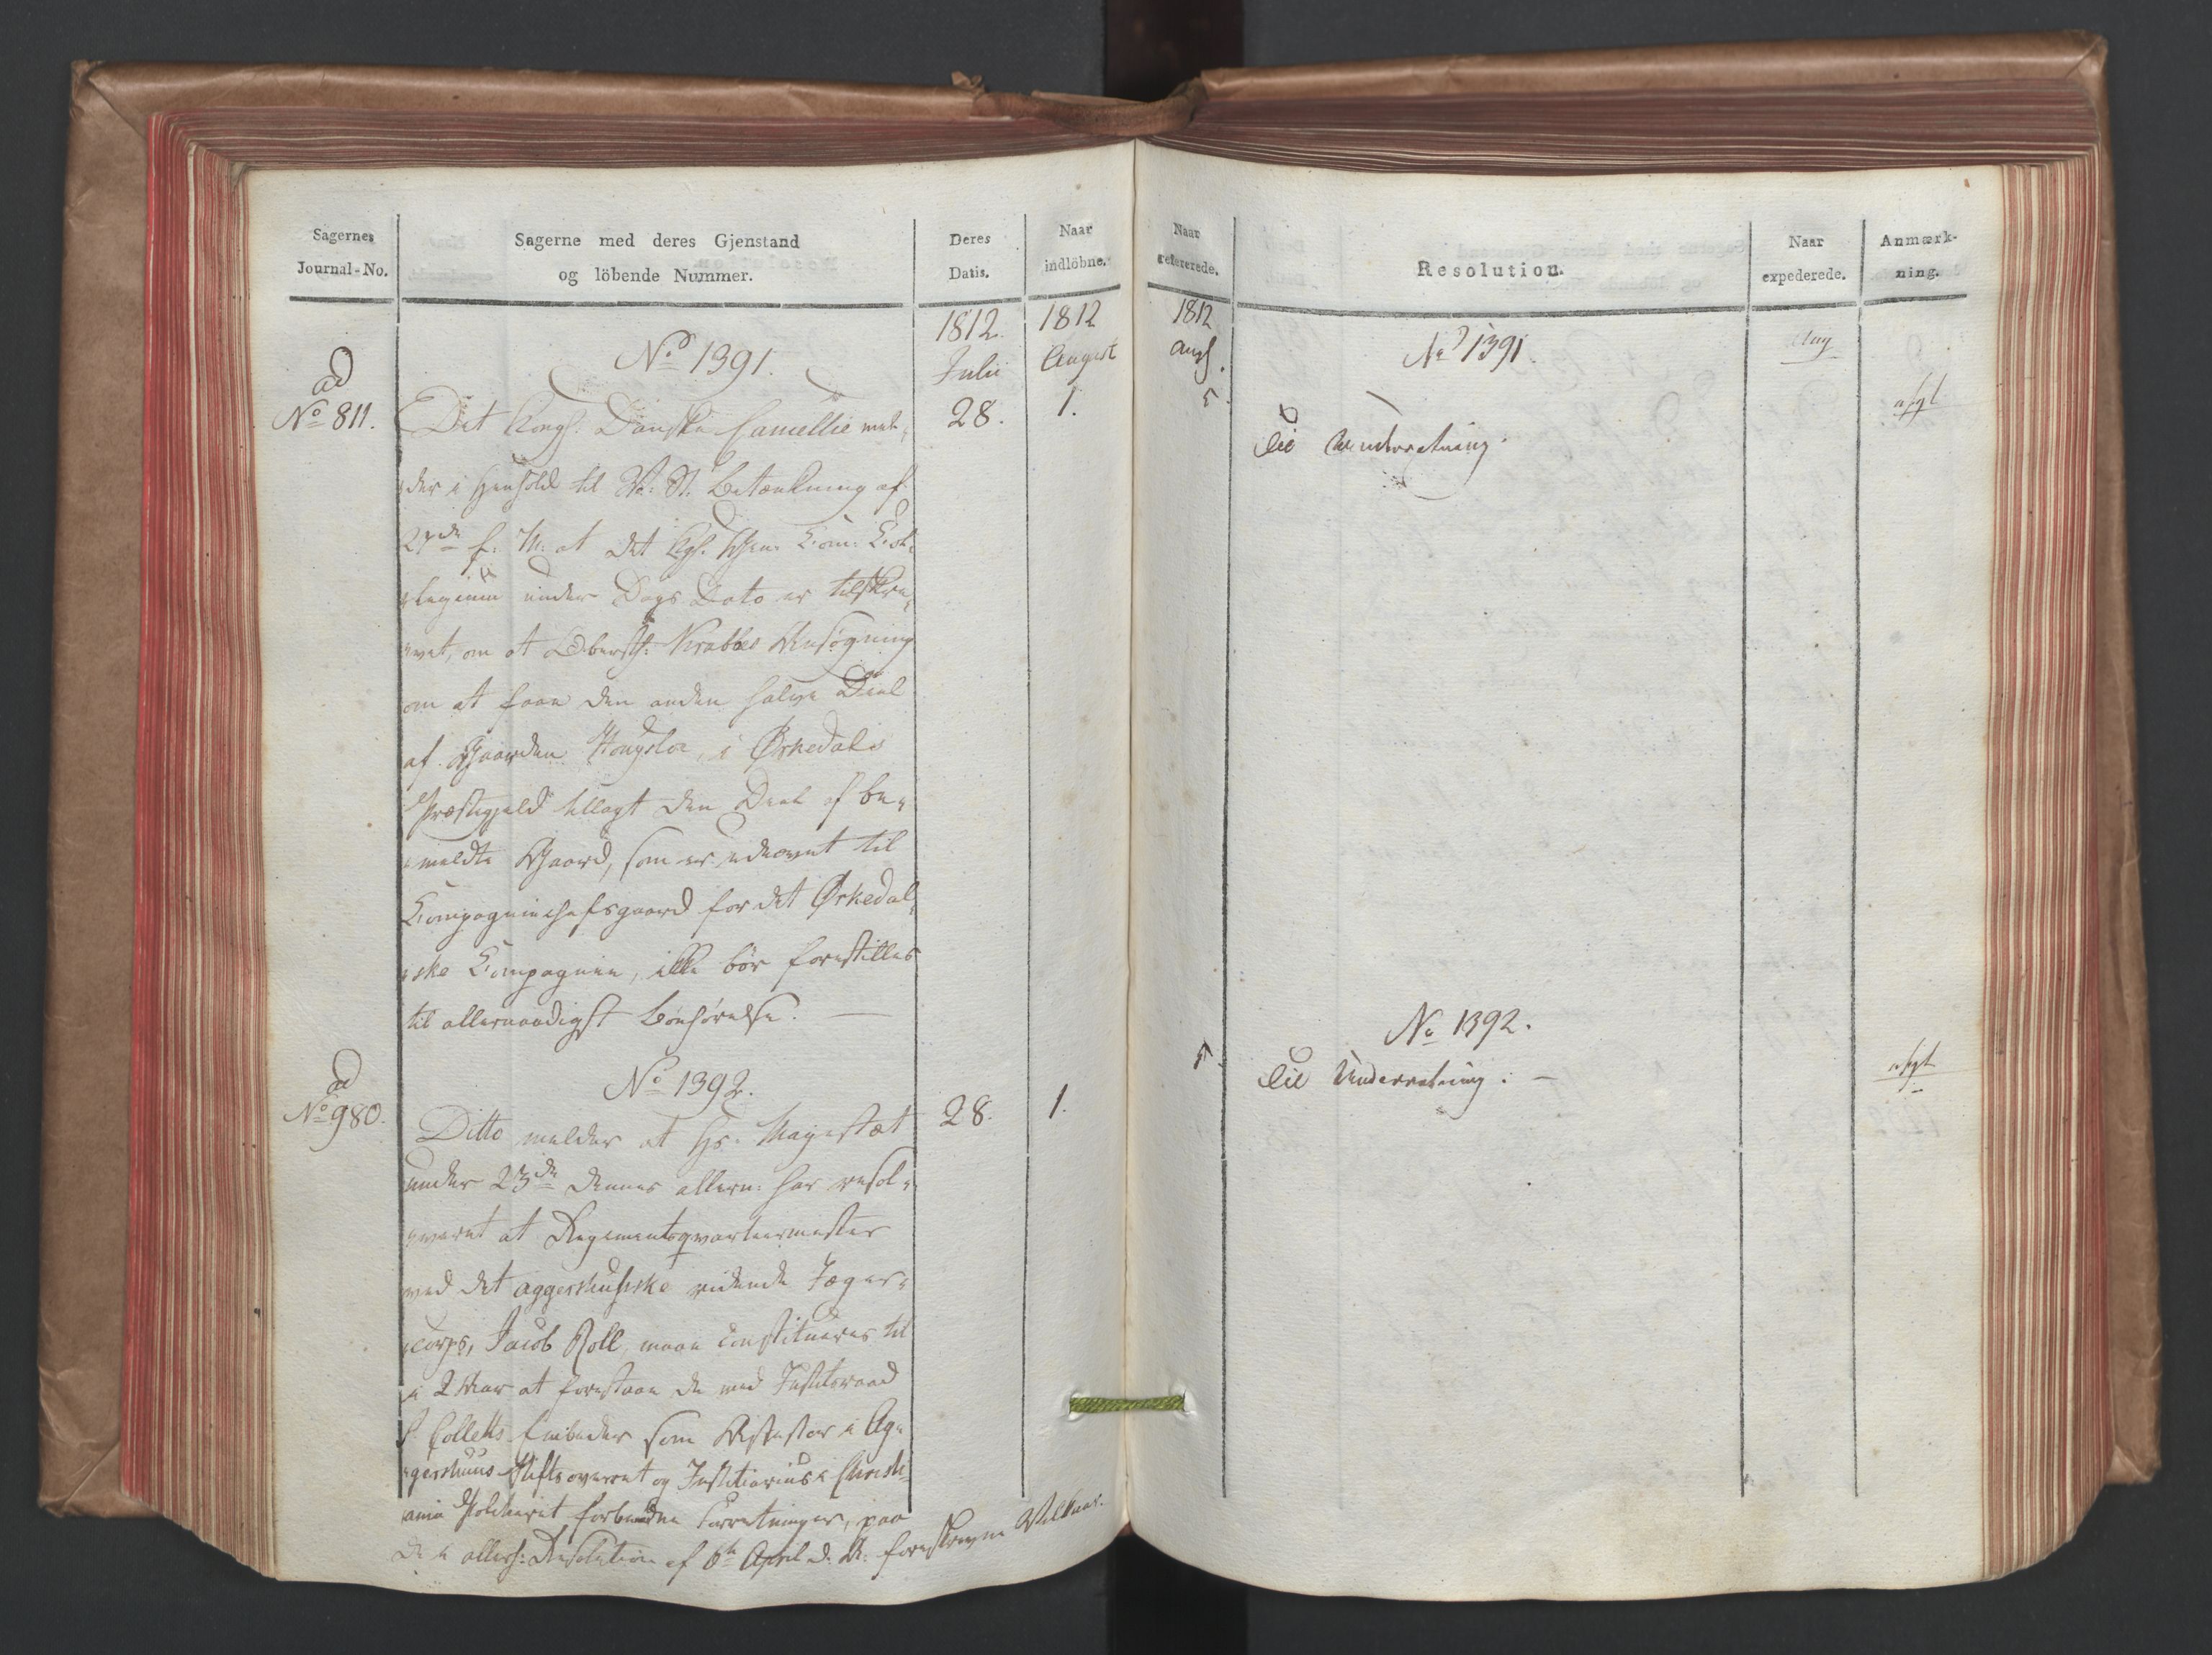 Sagernes
Journal-No.
Sagerne med deres Gjenstand
og löbende Nummer.
Deres
Datis.
Naar
indlöbne.
1812.
Julii
1812
August
ad
No 811.
No 1391.
Det Kongl. Danske Cancellie mel-
der i Henhold til Vc. St. Betænkning af
27de f. M. at det Kgl. Gen. Com. Col-
legium under Dags Dato er tilskre-
vet, om at Oberstl. Krabbes Ansøgning
om at faae den anden halve Deel
af Gaarden Hougsloe, i Ørkedals
Præstegjeld tillagt den Deel af be-
meldte Gaard, som er udseet til
Compagniechefsgaard for det Ørkedal-
ske Compagnie, ikke bør forestilles
til allernaadigst Bønhørelse. —
28.
1.
ad
No 980.
No 1392.
Ditto melder at Hs. Majestæt
under 23de dennes allern. har resol-
veret at Regimentsqvarteermester
ved det aggershuusiske ridende Jæger-
corps, Jacob Roll, maae constitueres til
i 2 Aar at forestaae de med Justitsraad
P. Colletts Embeder som Assessor i Ag-
gershuus Stiftsoverret og Justitiarius i Christi-
ania Politieret forbundne Forretninger, paa
de i allerh. Resolution af 6te April d. A. foreskrevne Vilkaar.
28.
1.
Naar
refererede.
Resolution.
Naar
expederede.
Anmærk-
ning.
1812
Aug.
5.
No 1391.
Aug
Til Underretning.
afgl
No 1392.
5.
Til Underretning. —
afgl